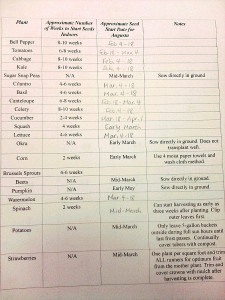 Plant Approximate Number of Weeks to Start Seeds Indoors Approximate Seed Start Date for Augusta Notes
Bell Pepper 8-10 weeks Feb. 4-18
Tomatoes 6-8 weeks Feb 18 - Mar 4
Cabbage 8-10 weeks Feb. 4-18
Kale 8-10 weeks Feb. 4-18
Sugar Snap Peas N/A Mid-March Sow directly in ground
Cilantro 4-6 weeks Mar. 4-18
Basil 4-6 weeks Mar. 4-18
Canteloupe 6-8 weeks Feb. 18 - Mar 4
Celery 8-10 weeks Feb. 4-18
Cucumber 2-4 weeks Mar. 18 - Apr. 1
Squash 4 weeks Early March
Lettuce 4-6 weeks Mar. 4-18
Okra N/A Early March Sow directly in ground. Does not
transplant well.
Corn 2 weeks Early March Use 4 moist paper towels and
wash cloth method.
Brussels Sprouts 4-6 weeks
Beets N/A Mid-March Sow directly in ground.
Pumpkin N/A Early May Sow directly in ground.
Watermelon 4-6 weeks Mar. 4-18
Spinach 2 weeks Mid-March Can start harvesting as early as
three weeks after planting. Clip
outer leaves first.
Potatoes N/A Mid-March Only leave 5 gallon buckets
outside during full sun hours until
last frost passes. Continually
cover tubers with compost.
Strawberries N/A Mid-March One plant per square foot and trim
ALL runners for optimum fruit
from the mother plant. Trim and
cover crowns with mulch after
harvesting is complete.